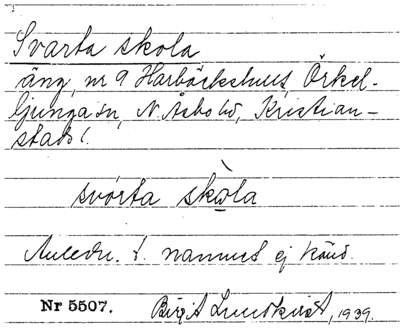 Svarta skola
äng, nr 9 Harbäckshult, Örkel-
ljunga sn, N. Åsbo hd, Kristian-
stads l.
svórta skòla
Anledn. t. namnet ej känd.
Nr 5507. Birgit Lundkvist, 1939.